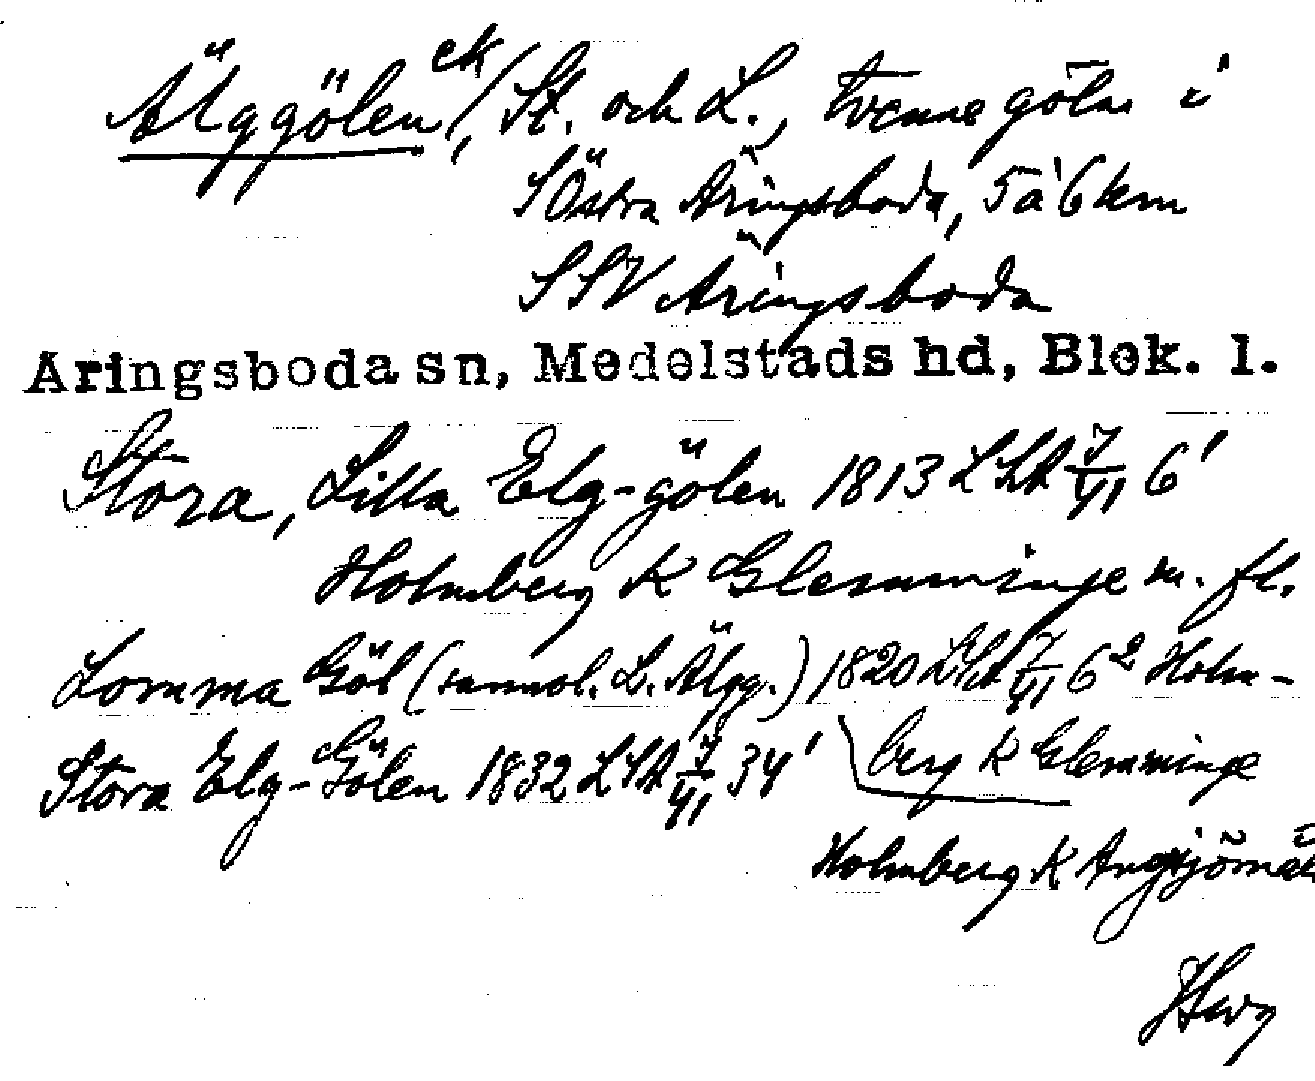 Älggölen ek/, St. och L., tvenne gölar i
S Östra Åringsboda, 5 à 6 km
SSV Åringsboda
Aringsboda sn, Medelstads hd, Blek. l.
Stora, Lilla Elg-gölen 1813 LSA 7/VI 6¹
Holmberg K Glemminge m. fl.
Lomma Göl (sannol. L. Älgg.) 1820 LSA 7/VI 6² Holm-
berg K Glemminge
Stora Elg-Gölen 1832 LSA 7/VI 34¹
Holmberg K